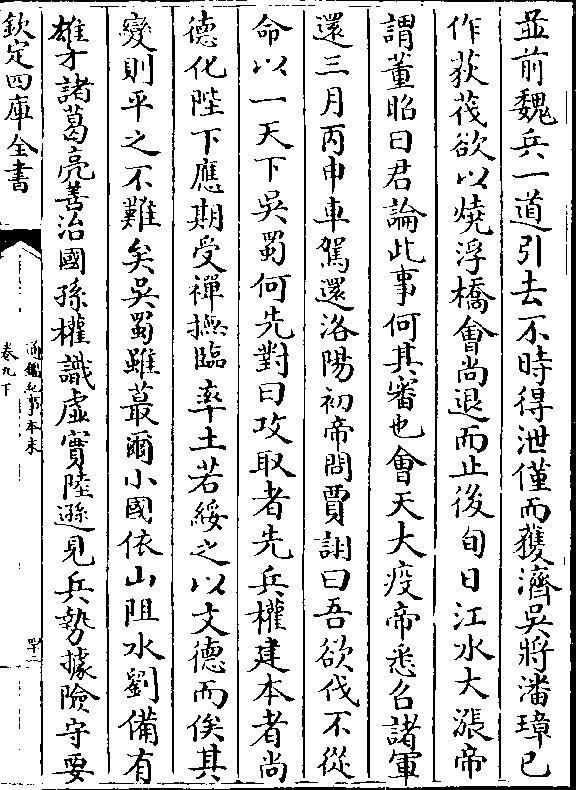 並前魏兵一道引去不時得泄僅而獲濟吳將潘璋已
作荻筏欲以燒浮橋會尚退而止後旬日江水大漲帝
謂董昭曰君論此事何其審也會天大疫帝悉召諸軍
還三月丙申車駕還洛陽初帝問賈詡曰吾欲伐不從
命以一天下吳蜀何先對曰攻取者先兵權建本者尚
德化陛下應期受禪撫臨率土若綏之以文德而俟其
變則平之不難矣吳蜀雖蕞爾小國依山阻水劉備有
雄才諸葛亮善治國孫權識虛實陸遜見兵勢據險守要
欽定四庫全書
通鑑紀事本末
卷九下
四十二